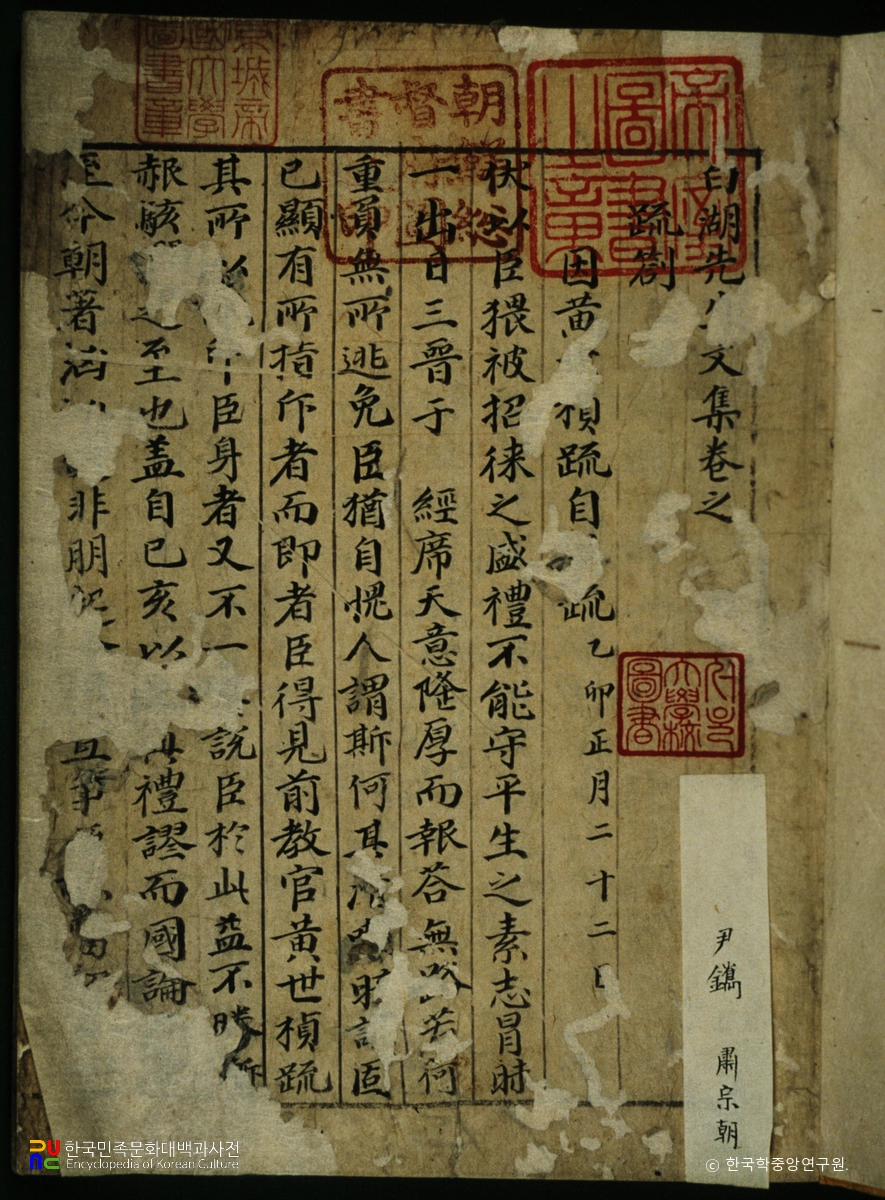 白湖先生文集卷之
疏箚
因黃世楨疏自疏 乙卯正月二十二日
伏以臣猥被招徠之盛禮不能守平生之素志冒時
一出日三晉于 經席天意隆厚而報答無若何
重負無所逃免臣猶自愰人謂斯何其
已顯有所指斥者而即者臣得見前教官黃世楨疏
其所 臣身者又不一 說臣於此益不勝
赧駭 之至也盖自己亥以 禮謬而國論
至今朝著 非朋
朝鮮總督府圖書
帝國圖書之章
京城帝國大學圖書章
서울大學校圖書
尹鑴 肅宗朝
한국민족문화대백과사전
Encyclopedia of Korean Culture
© 한국학중앙연구원.